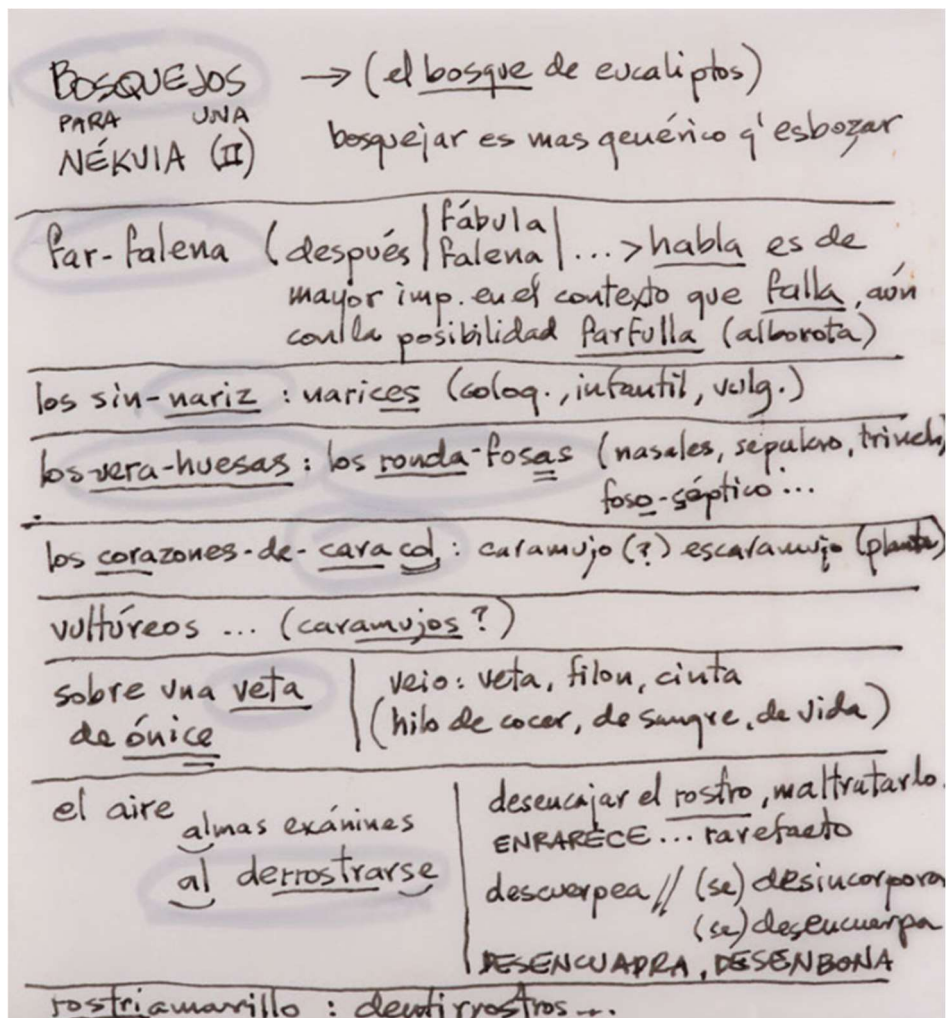 BOSQUEJOS → (el bosque de eucaliptos)
PARA UNA
NÉKUIA (II) bosquejar es mas genérico q' esbozar
far-falena (después | fábula
falena | ... > habla es de
mayor imp. en el contexto que falla, aún
con la posibilidad farfulla (alborota)
los sin-nariz : narices (coloq., infantil, vulg.)
los vera-huesas : los ronda-fosas (nasales, sepulcro,
foso-séptico ...
los corazones-de-caracol : caramujo (?) escaramujo (planta)
vultúreos ... (caramujos?)
sobre una veta
de ónice
veio: veta, filon, cinta
(hilo de cocer, de sangre, de vida)
el aire
almas exánimes
al derrostrarse
desencajar el rostro, maltratarlo.
ENRARECE ... rarefacto
descuerpea // (se) desincorpora
(se) desencuerpa
DESENCUADRA, DESENBONA
rostriamarillo : dentirrostros ...